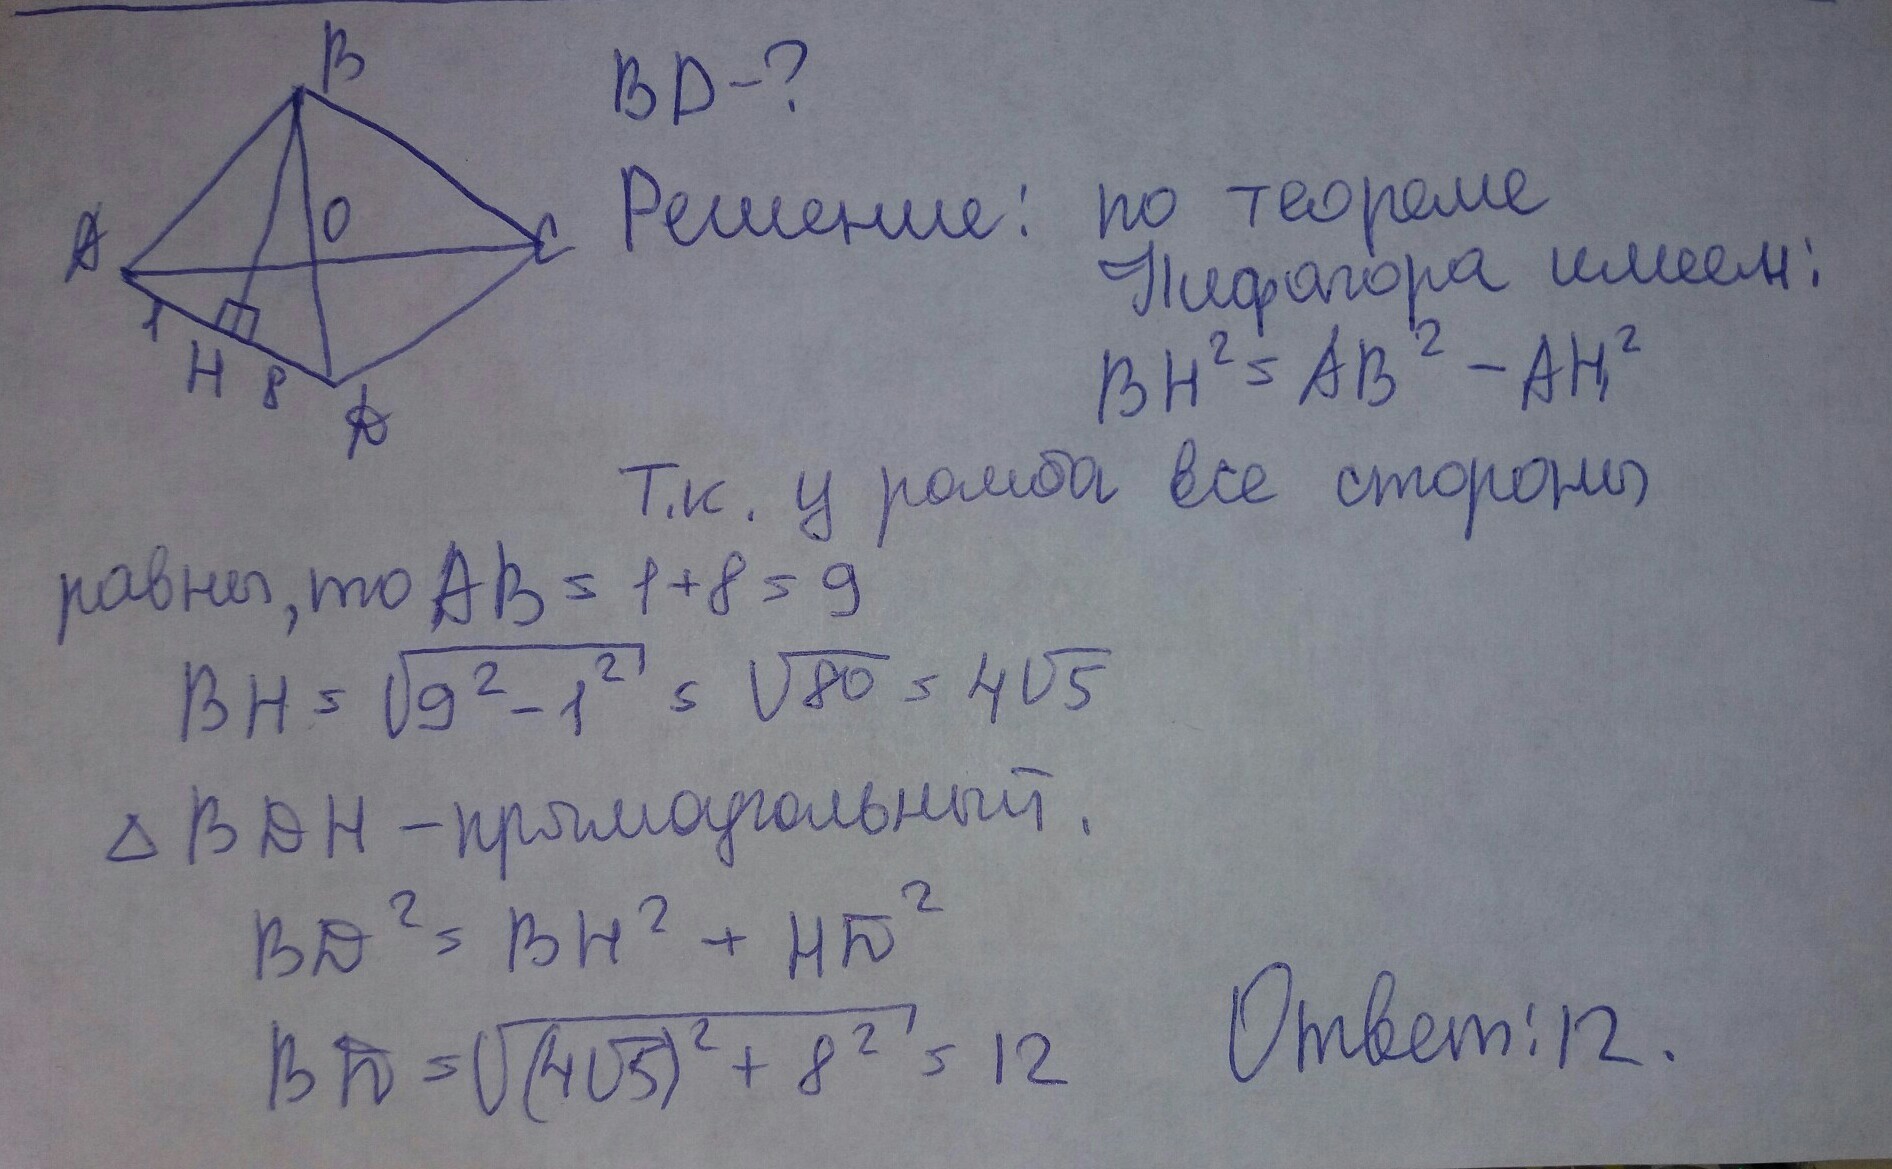 B
BD-?
A
O
C
1
H
8
D
Решение: по теореме
Пифагора имеем:
BH²=AB²-AH²
Т.к. у ромба все стороны
равны, то AB=1+8=9
BH=√(9²-1²)=√80=4√5
△BDH-прямоугольный.
BD²=BH²+HD²
BD=√((4√5)²+8²)=12
Ответ: 12.